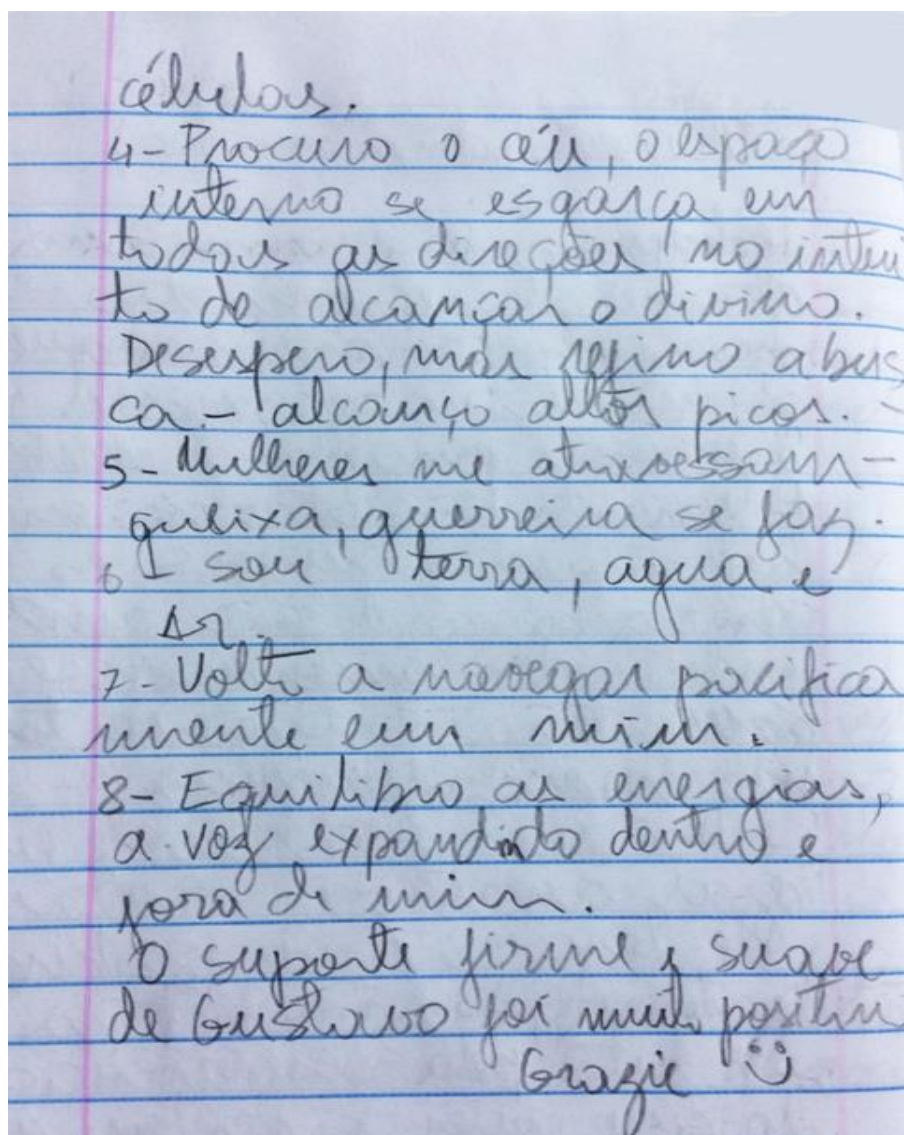 células.
4- Procuro o céu, o espaço
interno se esgarça em
todas as direções no inten
to de alcançar o divino.
Desespero, mas refino a bus
ca - alcanço altos picos. -
5- Mulheres me atravessam -
gueixa, guerreira se faz.
6- sou terra, agua e
Ar.
7- Volto a navegar pacifica
mente em mim.
8- Equilibro as energias,
a voz expandindo dentro e
fora de mim.
O suporte firme e suave
de Gustavo foi muito positivo
Grazie :)